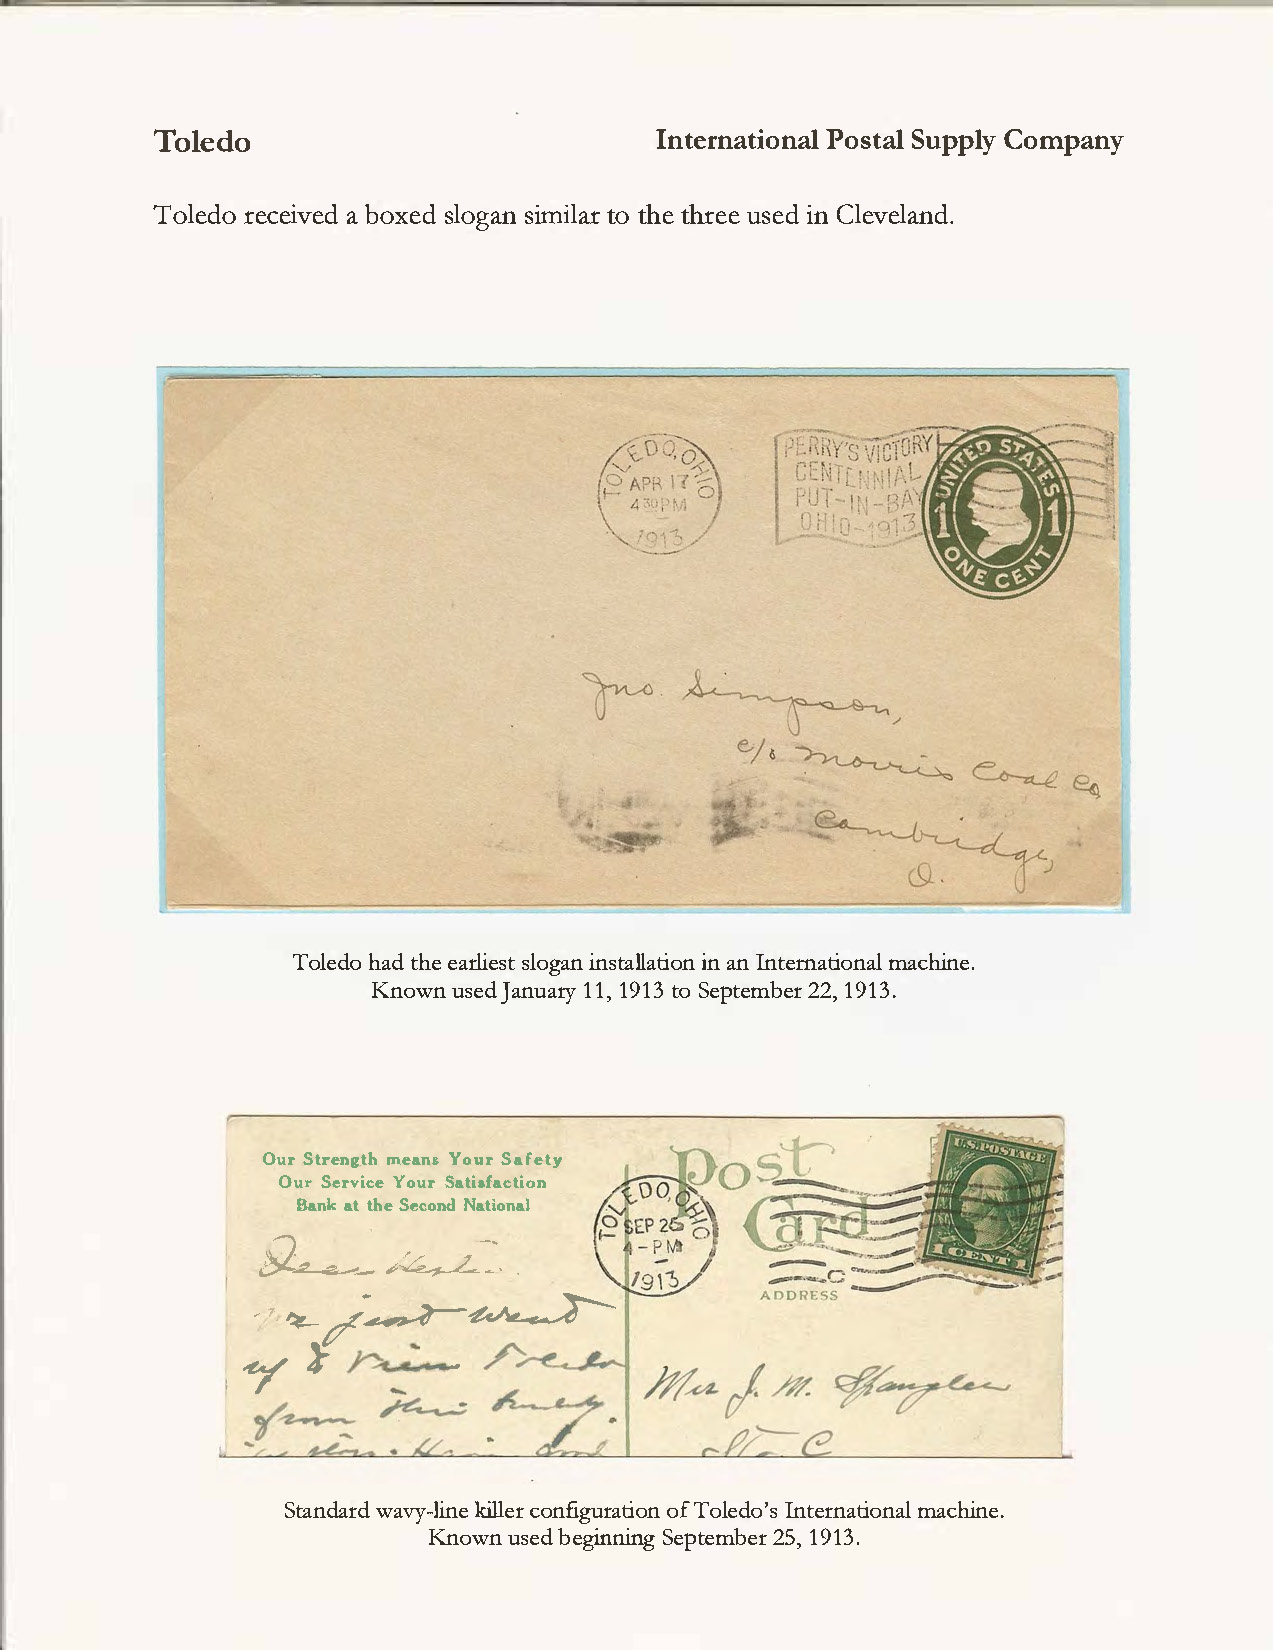 Toledo
International Postal Supply Company
Toledo received a boxed slogan similar to the three used in Cleveland.
TOLEDO, OHIO
APR 17
4 30 PM
1913
PERRY'S VICTORY
CENTENNIAL
PUT-IN-BAY
OHIO-1913
UNITED STATES
1 1
ONE CENT
Jno. Simpson,
c/o Morris Coal Co,
Cambridge,
O.
Toledo had the earliest slogan installation in an International machine.
Known used January 11, 1913 to September 22, 1913.
Our Strength means Your Safety
Our Service Your Satisfaction
Bank at the Second National
Post
Card
ADDRESS
TOLEDO, OHIO
SEP 25
4-PM
1913
C
U.S. POSTAGE
1 CENT 1
Dear
just went
up to view Toledo
from this
Mrs J. M. Spangler
Sta C
Standard wavy-line killer configuration of Toledo's International machine.
Known used beginning September 25, 1913.